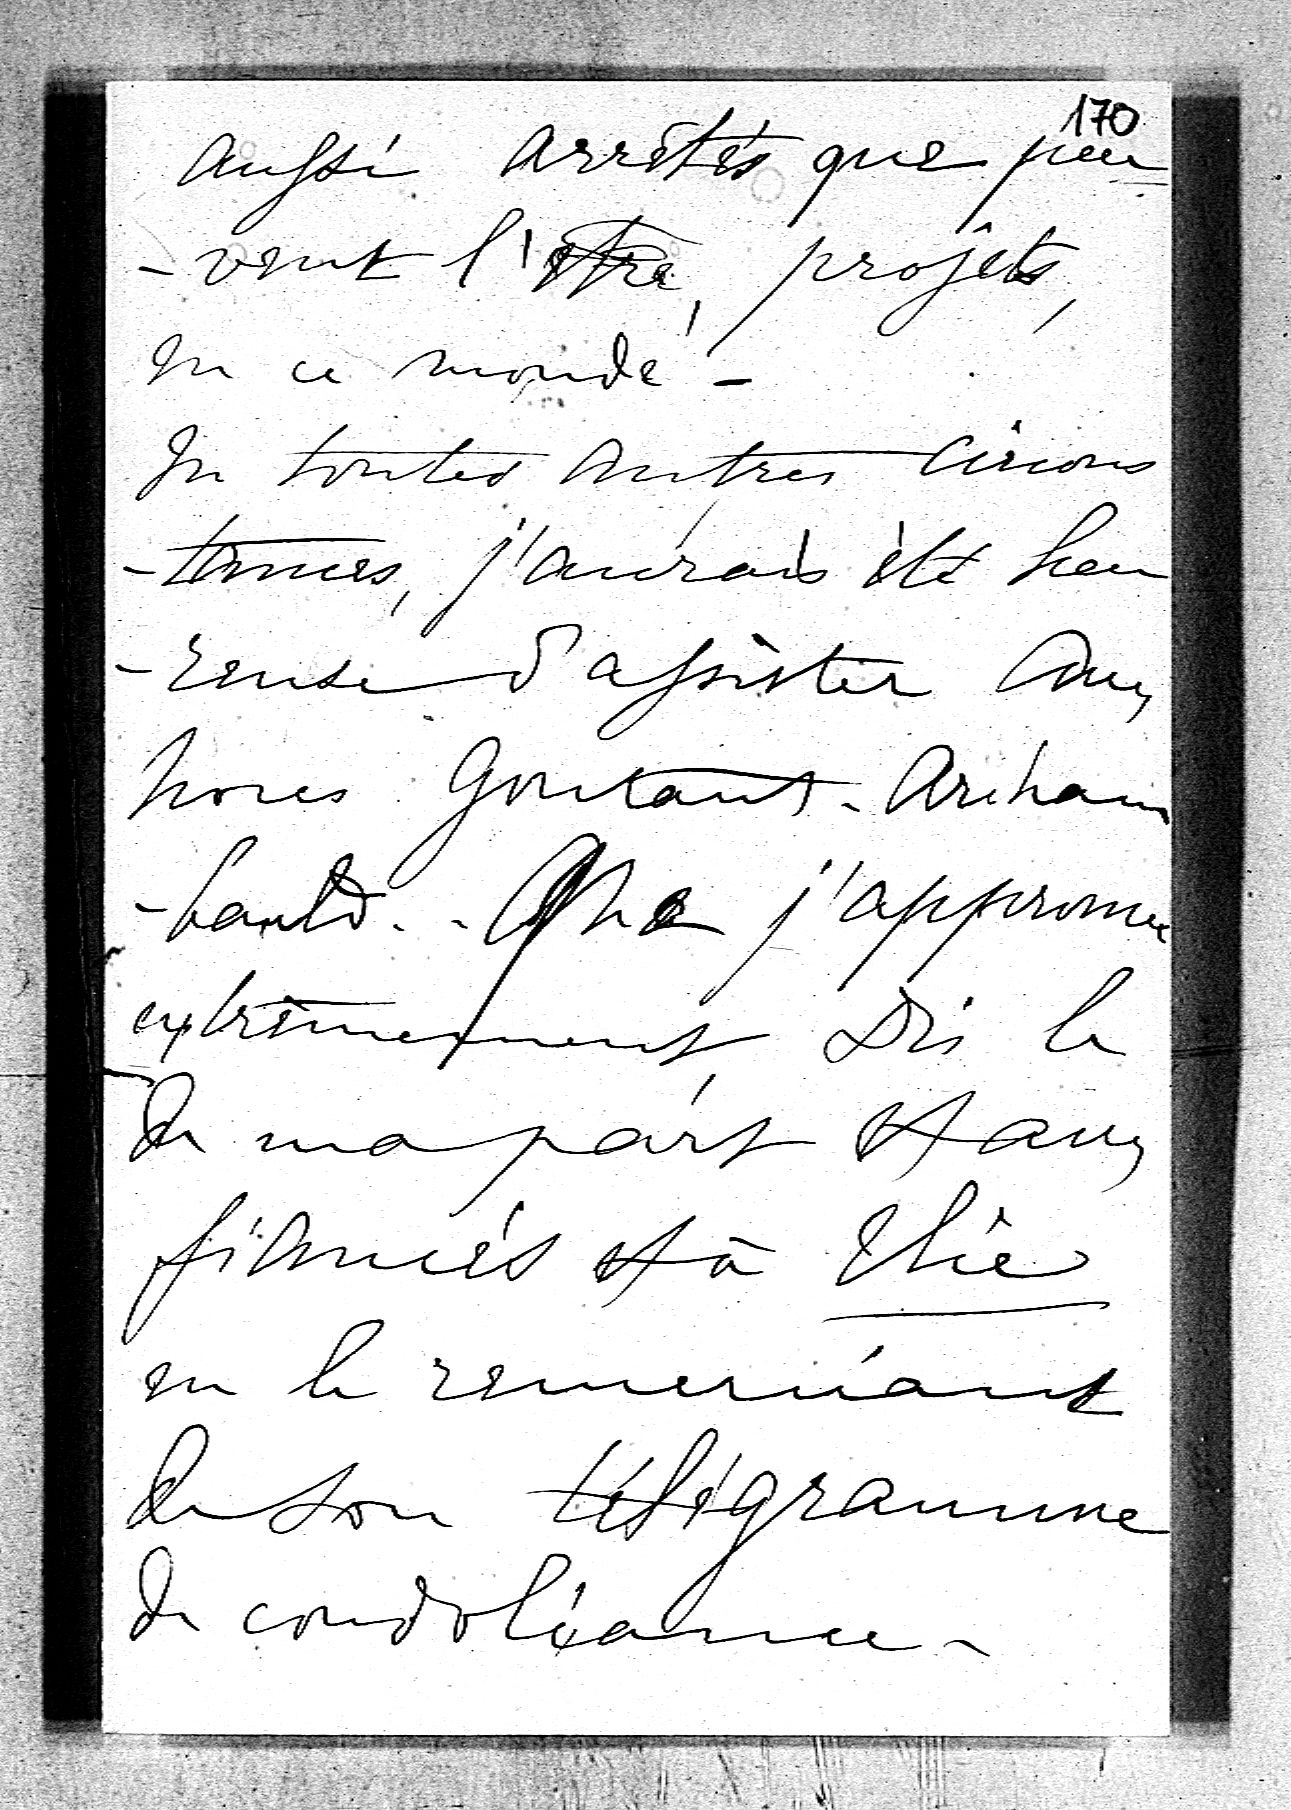 170
aussi arrêtés que peu
-vent l'être, projets,
en ce monde -
En toutes autres circons
-tances, j'aurais été heu
-reuse d'assister aux
noces Gontaut-Archam
-bauld. - Que j'approuve
extrêmement, dis le
de ma part et aux
fiancés et à Élie
en le remerciant
de son télégramme
de condoléance -